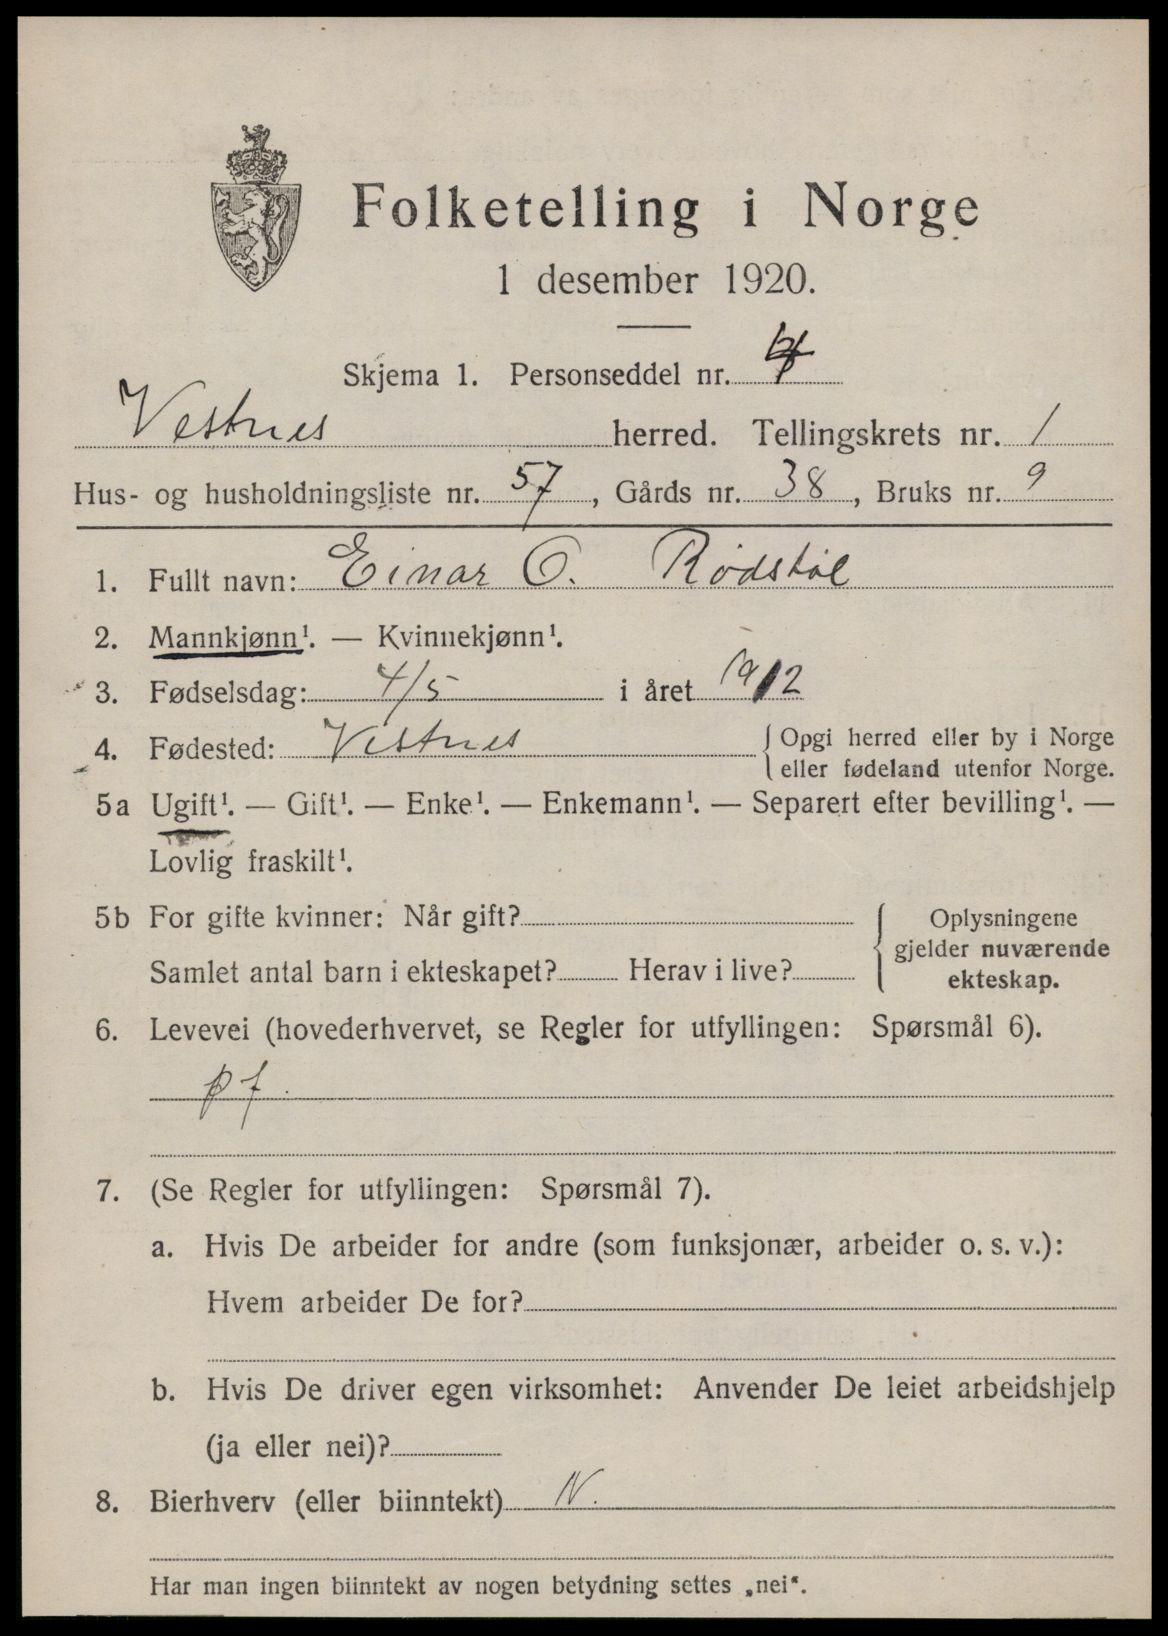 Folketelling i Norge
1 desember 1920.
Skjema 1. Personseddel nr.
Vestnes herred. Tellingskrets nr. 1
Hus- og husholdningsliste nr. 57, Gårds nr. 38, Bruks nr. 9
1. Fullt navn: Einar O. Rødstøl
2. Mannkjønn¹. — Kvinnekjønn¹.
3. Fødselsdag: 4/5 i året 1912
4. Fødested: Vestnes {Opgi herred eller by i Norge
eller fødeland utenfor Norge.
5a Ugift¹. — Gift¹. — Enke¹. — Enkemann¹. — Separert efter bevilling¹. —
Lovlig fraskilt¹.
5b For gifte kvinner: Når gift?
Samlet antal barn i ekteskapet? Herav i live?
{Oplysningene
gjelder nuværende
ekteskap.
6. Levevei (hovederhvervet, se Regler for utfyllingen: Spørsmål 6).
pf.
7. (Se Regler for utfyllingen: Spørsmål 7).
a. Hvis De arbeider for andre (som funksjonær, arbeider o. s. v.):
Hvem arbeider De for?
b. Hvis De driver egen virksomhet: Anvender De leiet arbeidshjelp
(ja eller nei)?
8. Bierhverv (eller biinntekt) N.
Har man ingen biinntekt av nogen betydning settes „nei“.